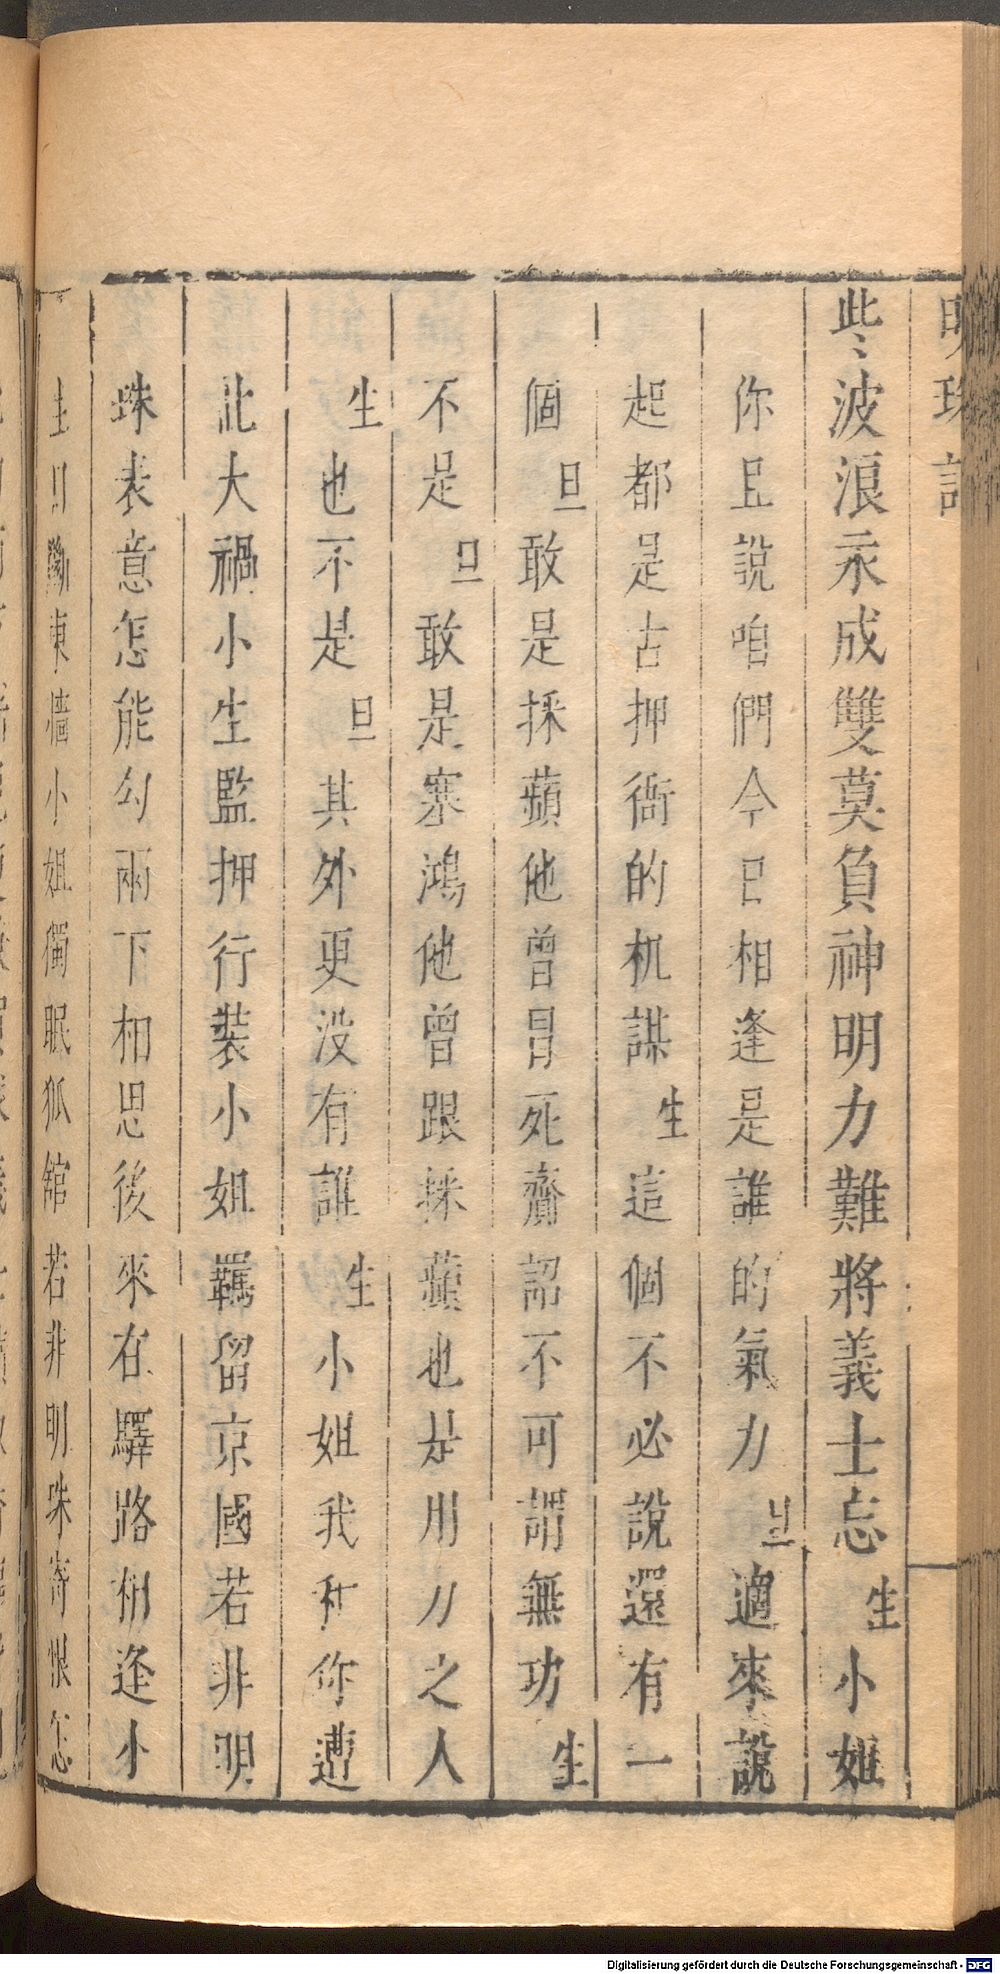 明珠記
些〻波浪永成雙莫負神明力難將義士忘生小姐
你且說咱們今日相逢是誰的氣力旦適來說
起都是古押衙的机謀生這個不必說還有一
個旦敢是採蘋他曾冒死齎詔不可謂無功生
不是旦敢是塞鴻他曾跟採蘋也是用力之人
生也不是旦其外更没有誰生小姐我和你遭
此大禍小生監押行裝小姐羈留京國若非明
珠表意怎能勾兩下相思後來在驛路相逢小
生日東墻小姐獨眠狐舘若非明珠寄恨怎
Digitalisierung gefördert durch die Deutsche Forschungsgemeinschaft - DFG